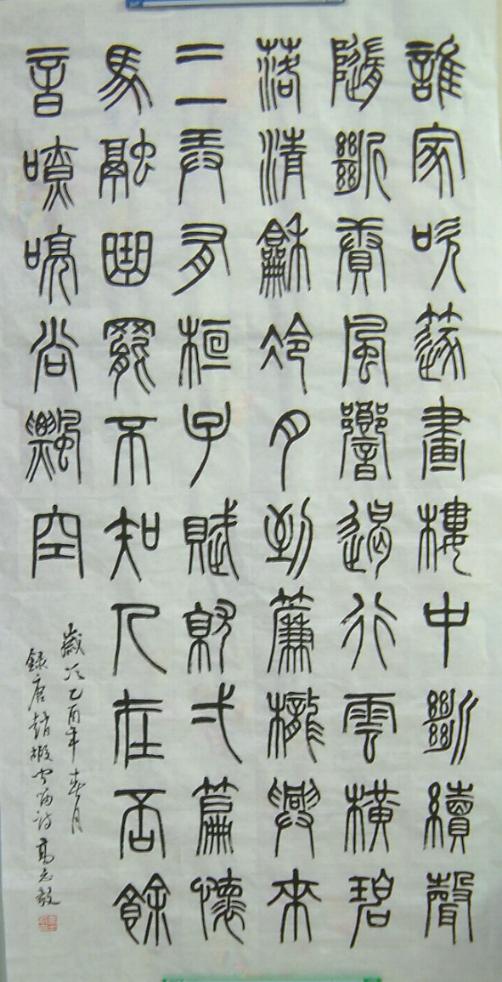 誰家吹篴畫樓中斷續聲
隨斷賡風響遏行雲橫碧
落清龢冷月到簾櫳興來
三弄有桓子賦就弌篇懷
馬融曲罷不知人在否餘
音嘹喨尚飄空
歲次乙酉年春月
錄唐趙嘏聞笛詩 高志